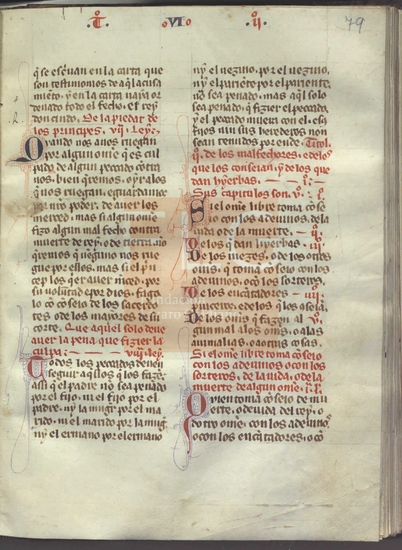 T.º .VI.º .II.º 79
q̃ se escriuan en la carta que
son testimonios de aq̃l acusa
miẽto. ⁊ en la carta uaya or
denado todo el fecho. El rey
don cindo. De la piedat de
los principes. vij. Ley.
Quando nos algunos ruegan
por algun om̃e q̃ es cul
pado de algun pecado contra
nos bien q̃remos oyr a los
q̃ nos ruegan
merced. mas si algun om̃e
fizo algun mal fecho contra
muerte de rey o de tierra. nõ
q̃remos q̃ ninguno nos rue
gue por ellos. mas si el pñ
cep los q̃ier auer mercet. por
su uoluntad o por dios. fága
lo cõ cõseio de los sacerdo
tes o de los mayores de su
corte. Que aquel solo deue
auer la pena que fizier la
culpa. viij. ley.
Todos los pecados deuen
seguir a aq̃llos que los fazen
assi q̃ el padre nõ sea penado
por el fijo. ni el fijo por el
padre. ny la mugier por el ma
rido. ni el marido por la mug̃
ny el ermano por el ermano
ny el uezino. por el uezino.
ny el pariẽte por el pariente
nõ sea penado. mas aq̃l solo
sea penado. q̃ fizier el pecado.
⁊ el pecado muera con el. ⁊ sus
fijos ni sus herederos non
sean tenudos por ende. Titol
.IIº. de los malfechores. ⁊ de los
que los conseian. ⁊ de los que
dan hyerbas.
Sus capitulos son.
Si el om̃e libre toma cõse
io con los adeuinos. de la
uida o de la muerte.
De los q̃ dan hyerbas.
De los iuezes. o de los otros
om̃s. q̃ toman cõseio con los
adeuinos. o cõ los sorteros.
De los encãtadores.
De los om̃s q̃ fizier al
gun mal a los om̃s. o a las
animalias. o a otras cosas.
Si el om̃e libre toma cõseio
con los adeuinos. o con los
sorteros. de la uida. o de la
muerte de algun om̃e.
Quien toma cõseio de mu
erte. o de uida del rey. o
dotro om̃e. con los adeuinos.
o con los encãtadores. o cõ